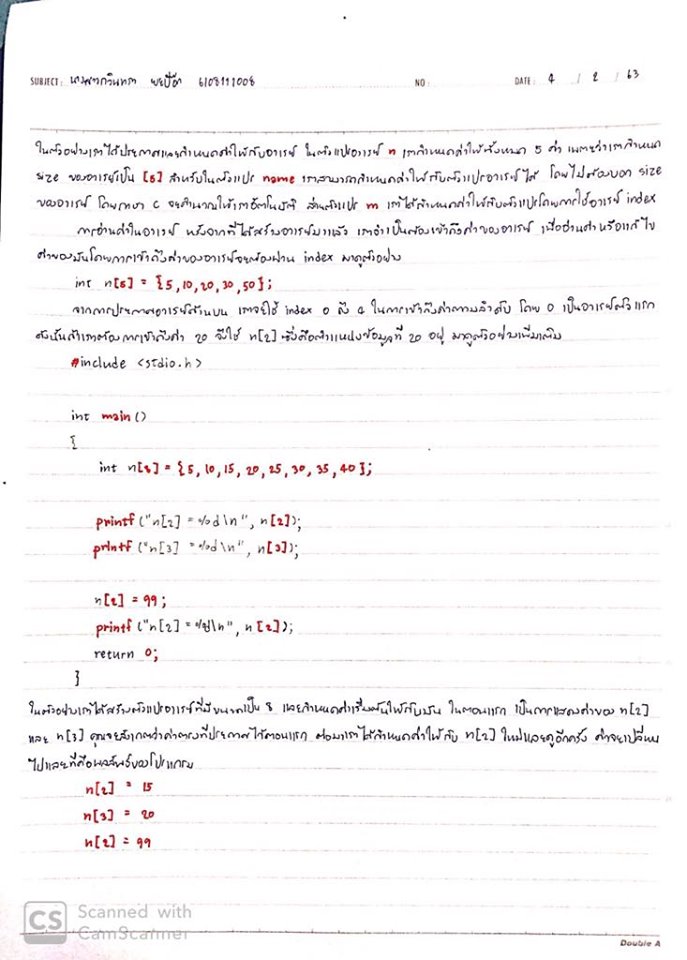 SUBJECT: นางสาวกวินทรา 6108111008 NO: DATE: 4 / 2 / 63
ในตัวอย่างเราได้ประกาศและกำหนดค่าให้กับอาเรย์ ในตัวแปรอาเรย์ n เรากำหนดค่าให้ทั้งหมด 5 ค่า เพราะว่าเรากำหนด
size ของอาเรย์เป็น [5] สำหรับในตัวแปร name เราสามารถกำหนดค่าให้กับตัวแปรอาเรย์ได้ โดยไม่ต้องบอก size
ของอาเรย์ โดยภาษา C จะคำนวณให้เราอัตโนมัติ ส่วนตัวแปร m เราได้กำหนดค่าให้กับตัวแปรโดยการใช้อาเรย์ index
การอ่านค่าในอาเรย์ หลังจากที่ได้สร้างอาเรย์มาแล้ว เราจำเป็นต้องเข้าถึงค่าของอาเรย์ เพื่ออ่านค่าหรือแก้ไข
ค่าของมันโดยการเข้าถึงค่าของอาเรย์จะต้องผ่าน index มาดูตัวอย่าง
int n[5] = {5,10,20,30,50};
จากการประกาศอาเรย์ด้านบน เราจะใช้ index 0 ถึง 4 ในการเข้าถึงค่าตามลำดับ โดย 0 เป็นอาเรย์ตัวแรก
ดังนั้นถ้าเราต้องการเข้าถึงค่า 20 จึงใช้ n[2] ซึ่งคือตำแหน่งข้อมูลที่ 20 อยู่ มาดูตัวอย่างเพิ่มเติม
#include <stdio.h>
int main()
{
int n[8] = {5,10,15,20,25,30,35,40};
printf("n[2] = %d\n", n[2]);
printf("n[3] = %d\n", n[3]);
n[2] = 99;
printf("n[2] = %d\n", n[2]);
return 0;
}
ในตัวอย่างเราได้สร้างตัวแปรอาเรย์ที่มีขนาดเป็น 8 และกำหนดค่าเริ่มต้นให้กับมัน ในตอนแรก เป็นการแสดงค่าของ n[2]
และ n[3] คุณจะสังเกตว่าค่าตรงที่ประกาศไว้ตอนแรก ต่อมาเราได้กำหนดค่าให้กับ n[2] ใหม่และดูอีกครั้ง ค่าจะเปลี่ยน
ไปและที่คือผลลัพธ์ของโปรแกรม
n[2] = 15
n[3] = 20
n[2] = 99
CS Scanned with
CamScanner
Double A